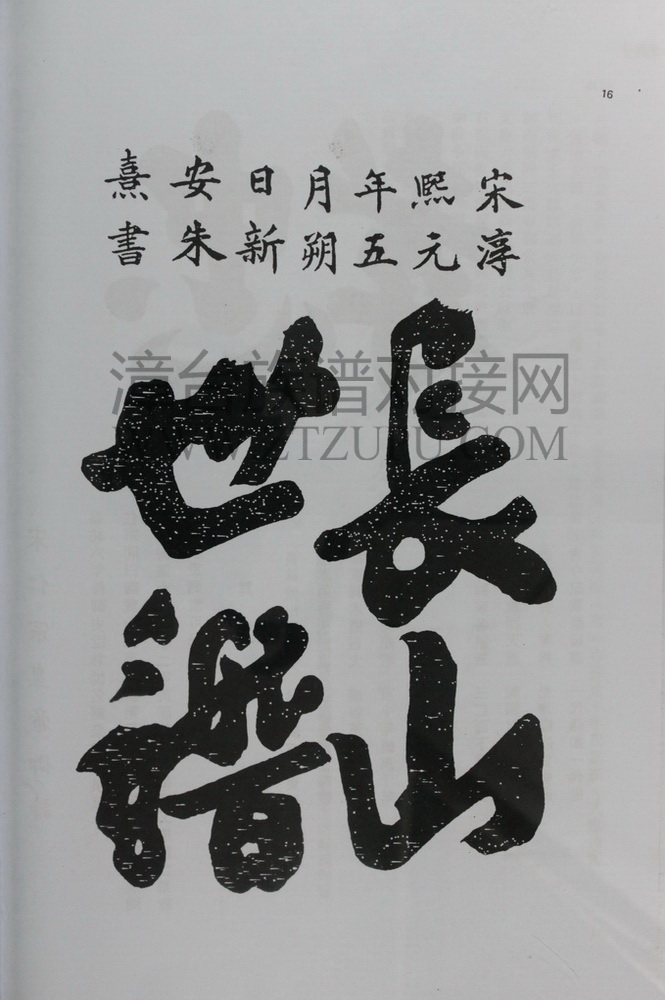 16
宋淳
熙元
年五
月朔
日新
安朱
熹書
長山
世譜
漳台族谱对接网
WWW.ZTZUPU.COM